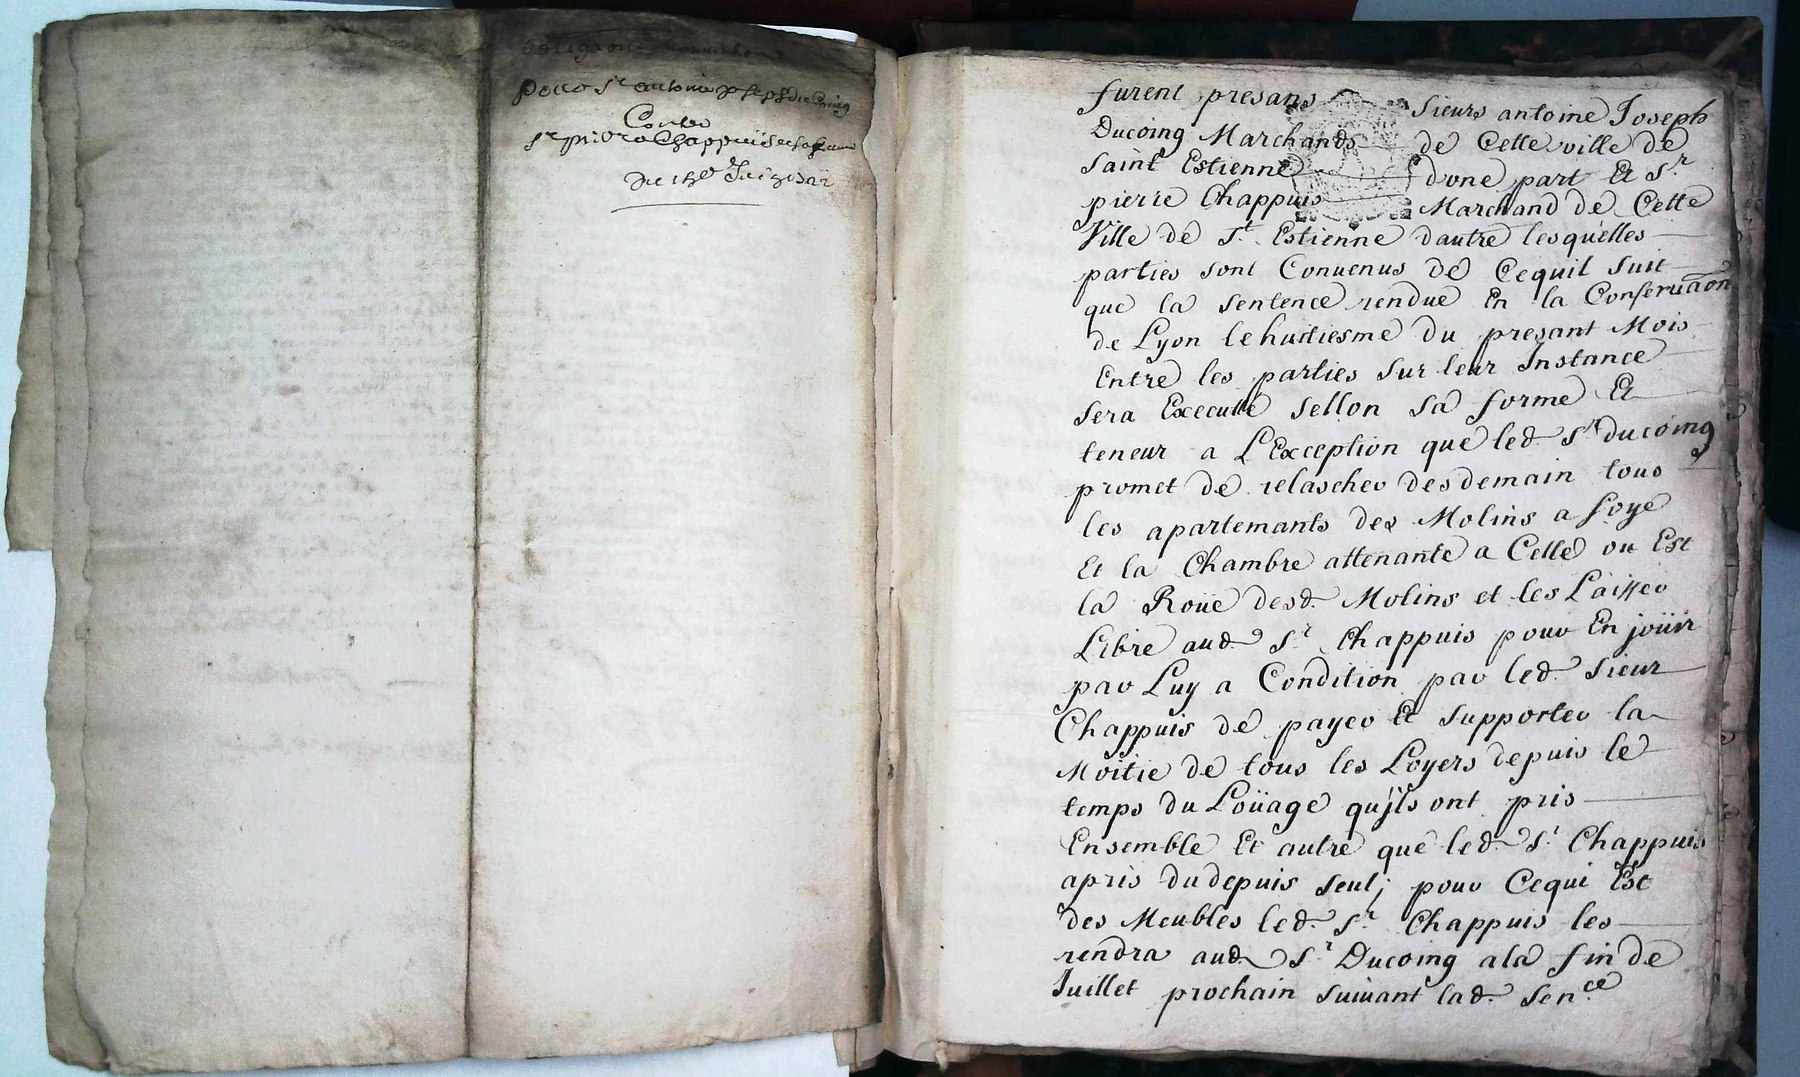 pour Sr antoine Joseph Ducoing
Contre
Sr pierre Chappuis et sa femme
Du
furent presans Sieurs antoine Joseph
Ducoing Marchands de Cette ville de
Saint Estienne dune part Et Sr
pierre Chappuis Marchand de Cette
Ville de St Estienne dautre lesquelles
parties sont Conuenus de Cequil suit
que la sentence rendue En la Conseruaon
de Lyon le huitiesme du presant Mois
Entre les parties sur leur Instance
sera Executté sellon sa forme Et
teneur a L'Exception que led. Sr ducoing
promet de relascher des demain tous
les apartemants des Molins a soye
Et la Chambre attenante a Celle ou Est
la Roüe desd. Molins et les Laisser
Libre aud. Sr Chappuis pour En joüir
par Luy a Condition par led. Sieur
Chappuis de payer Et supporter la
Moitie de tous les Loyers depuis le
temps du Loüage qu'jls ont pris
Ensemble Et autre que led. Sr Chappuis
apris du depuis seul; pour Cequi Est
des Meubles led. Sr Chappuis les
rendra aud. Sr Ducoing ala fin de
Juillet prochain suiuant lad. Sence